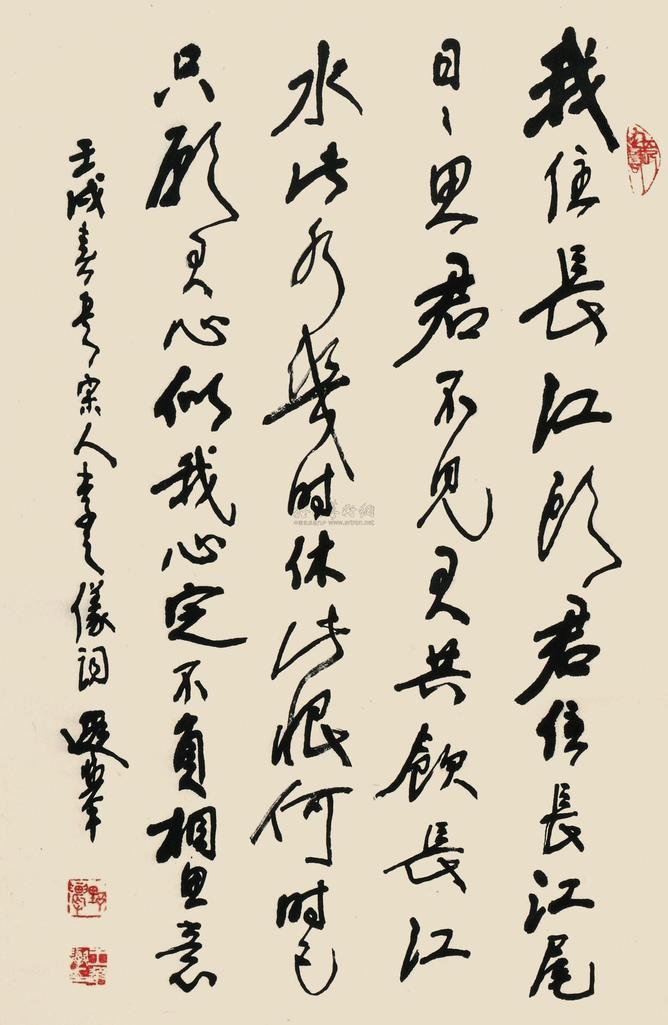 我住長江頭君住長江尾
日日思君不見君共飲長江
水此水幾時休此恨何時已
只願君心似我心定不負相思意
壬戌春 宋人李之儀詞
www.artron.net